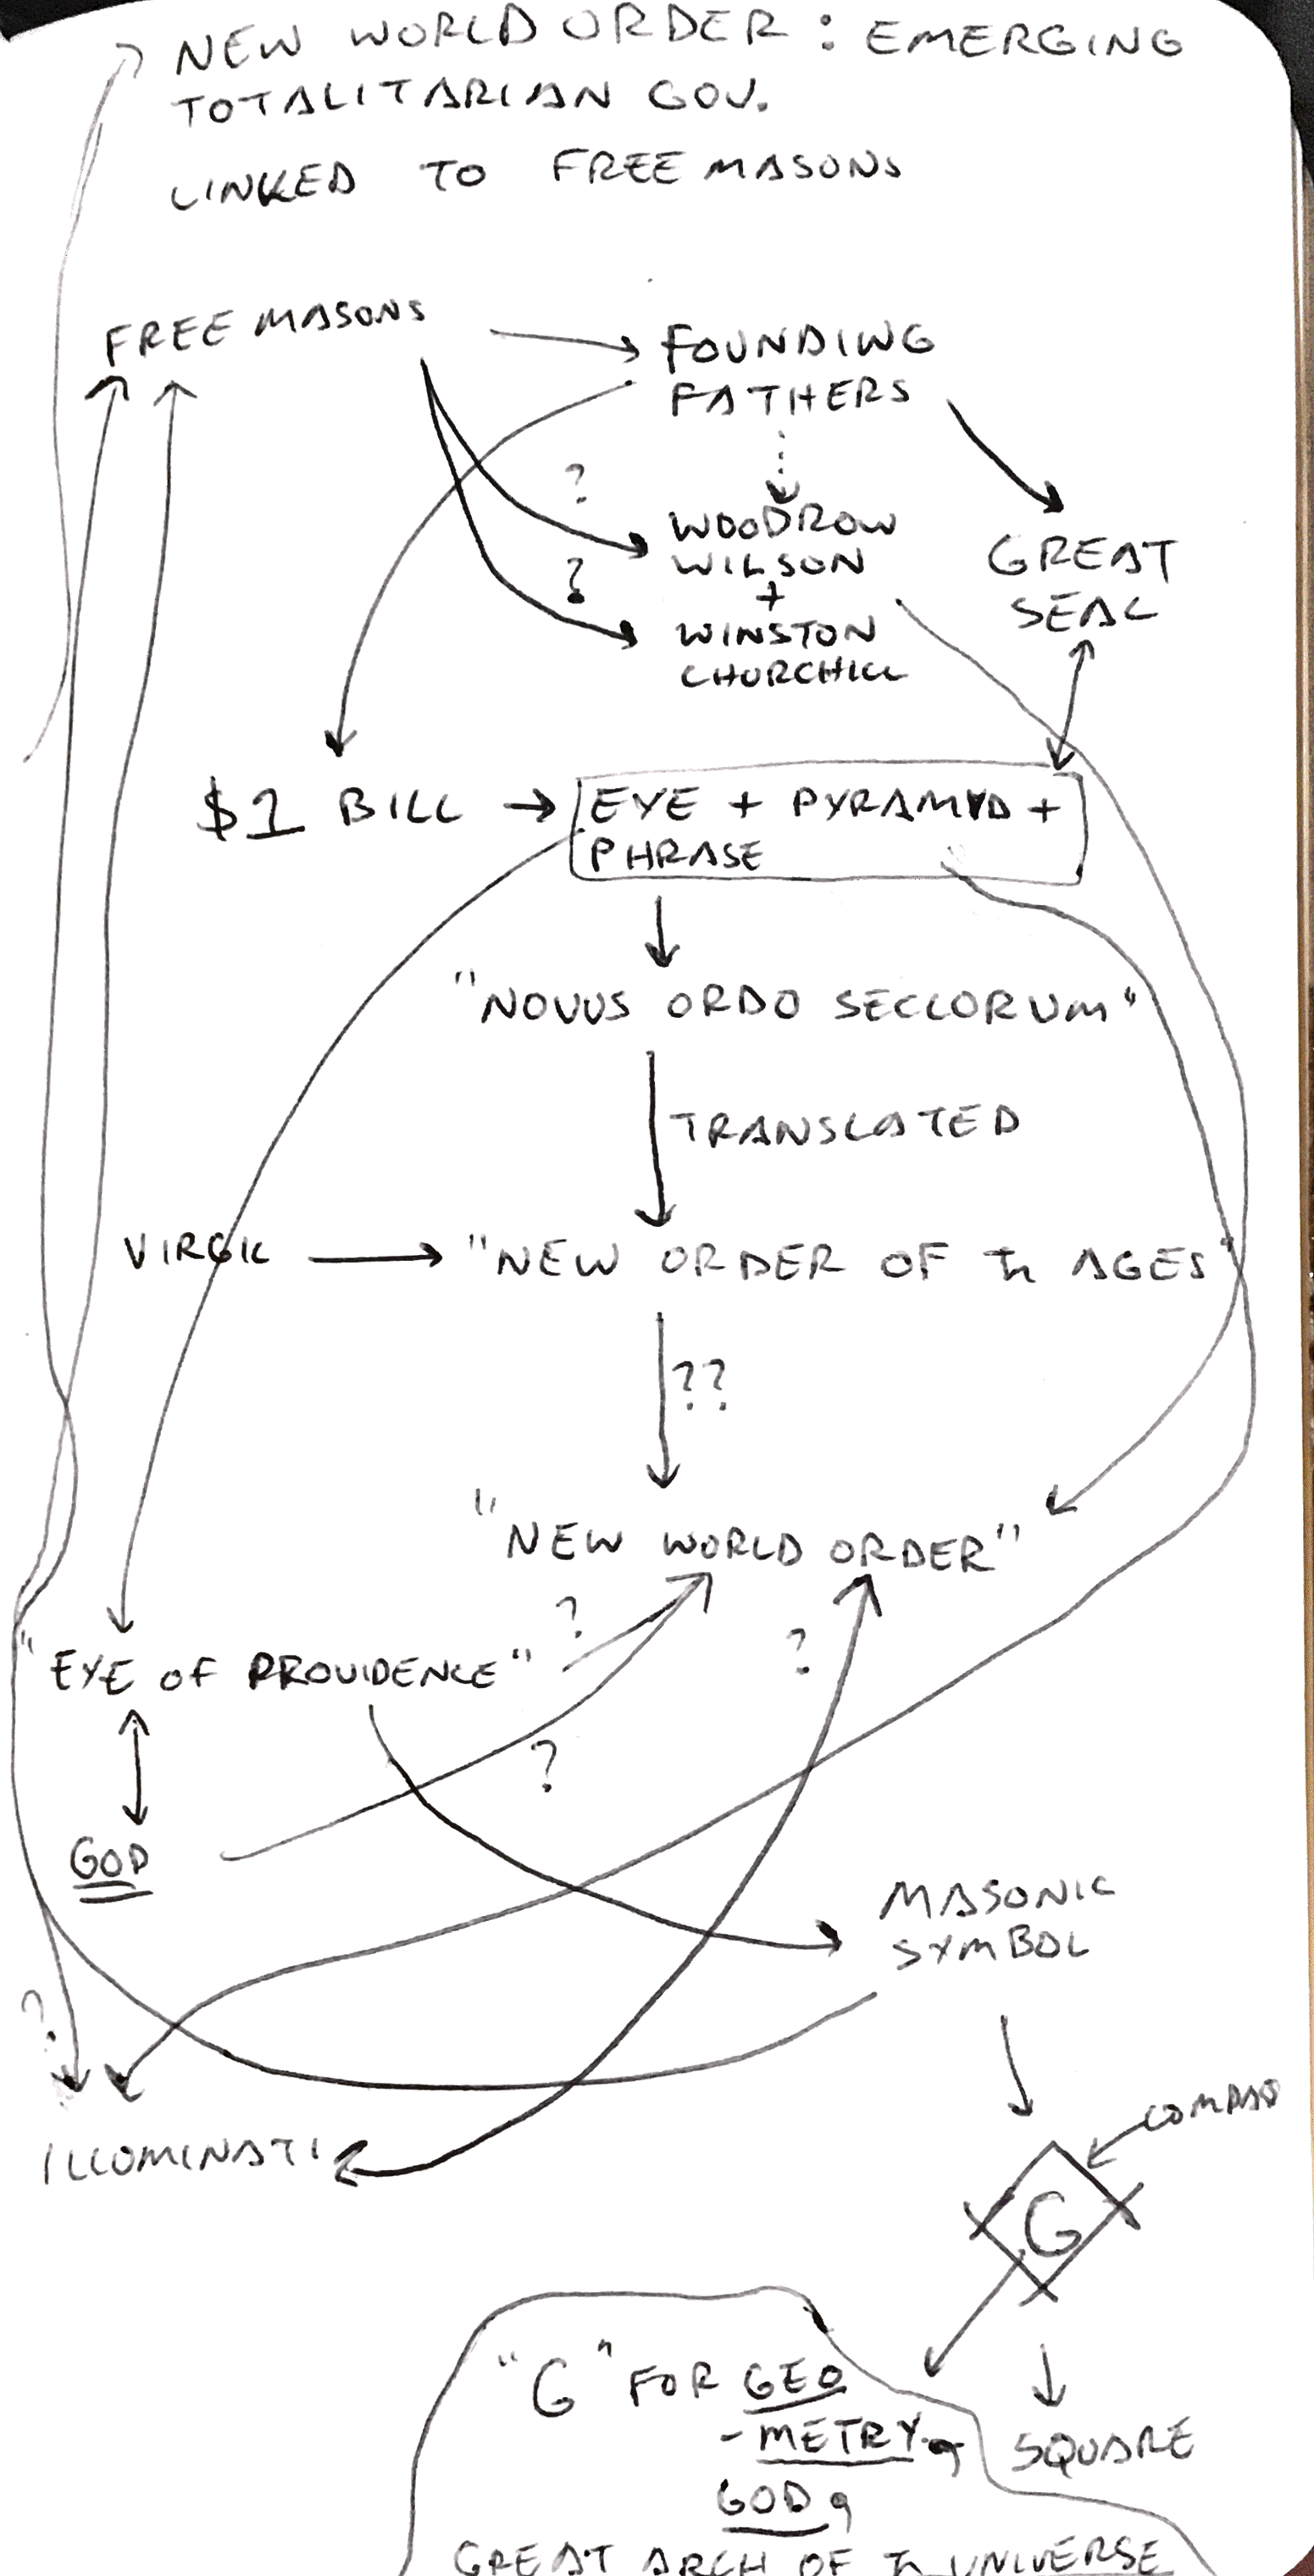 NEW WORLD ORDER : EMERGING
TOTALITARIAN GOV.
LINKED TO FREE MASONS
FREE MASONS
FOUNDING
FATHERS
?
WOODROW
WILSON
?
+
WINSTON
CHURCHILL
GREAT
SEAL
$1 BILL
EYE + PYRAMID +
PHRASE
"NOVUS ORDO SECLORUM"
TRANSLATED
VIRGIL
"NEW ORDER OF th AGES"
??
"NEW WORLD ORDER"
?
?
"EYE OF PROVIDENCE"
?
GOD
MASONIC
SYMBOL
?
ILLUMINATI
COMPASS
G
"G" FOR GEO
-METRY
GOD
SQUARE
GREAT ARCH OF th UNIVERSE